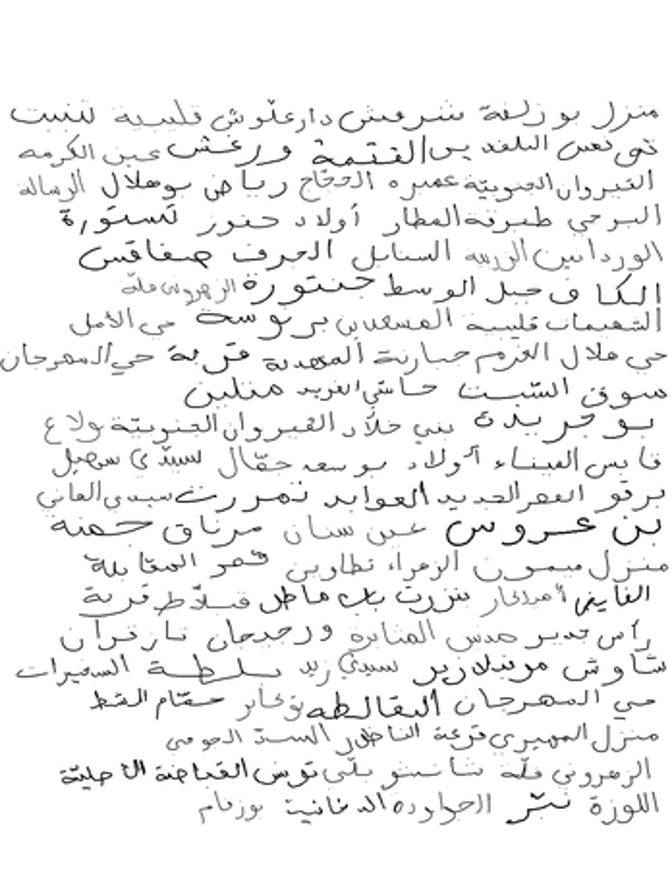 منزل بو زلفة شرفش دار علوش قليبية
القتمة ورغش عين الكرمه
القيروان الجنوبيّة عميره الحجّاج رياض بوهلال الرسالة
البرجي طبرقة المطار أولاد حنوز تستورة
الوردانين السنابل الحرف صفاقس
الكاف جبل الوسط جنتورة الزهروني فلّة
الشعيمات قليبية المسعدين بربوسة حي الأمل
حي هلال القرم جبارنة المهدية قربة حي المهرجان
سوق السّبت حاسّي الفريد منلين
بوجريدة بني خلاد القيروان الجنوبيّة ولاع
قابس الميناء أولاد بوسعد حفّال سيدي سهيل
برقو القصر الجديد العوابد تمررت سيدي العاني
بن عروس عين سنان مرناق جمنة
منزل ميمون الزهراء تطاوين قصر المقابلة
الفايض بنزرت باب ماطل قبلاّط قربة
رأس جدير هدس المنابرة ورجيجان تازغران
شاوش مونبلازير سيدي زيد سلطة السعيرات
حي المهرجان البقالطة حمّام الشط
منزل المهيري قرعة الناظور السدّ الجومي
الزهروني فلّة شانشو بلّي تونس القباضة الأصليّة
اللوزة نبّر الجواودة الدخانية بورقام